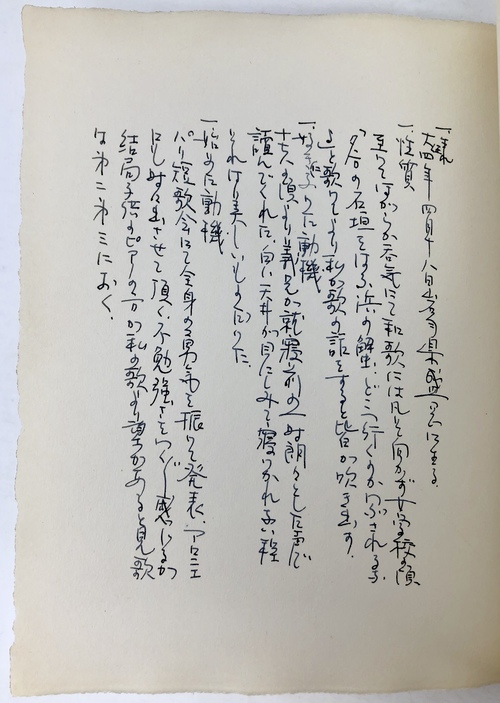 一、
大正四年四月十八日岩手県盛岡に生る。
一、性質
至つてほがらか呑気にて和歌には凡そ向かず女学校の頃
「名谷の石垣をはふ浜の蟹よどこへ行くのかつぶされるよ
」と歌つてより私が歌の話をすると皆が吹き出す。
一、好きになつた動機
十七八の頃より義兄が就寝前の一時朗々とした声で
読んでくれた白い天井が目にしみて寝つかれない程
それは美しいものだつた。
一、始めた動機
パリ短歌会にて全身の勇気を振つて発表、アロニエ
にも時々出させて頂く。不勉強さをつくづく感じるが
結局子供のピアノの方が私の歌より重みがあると見え歌
は第二第三におく。